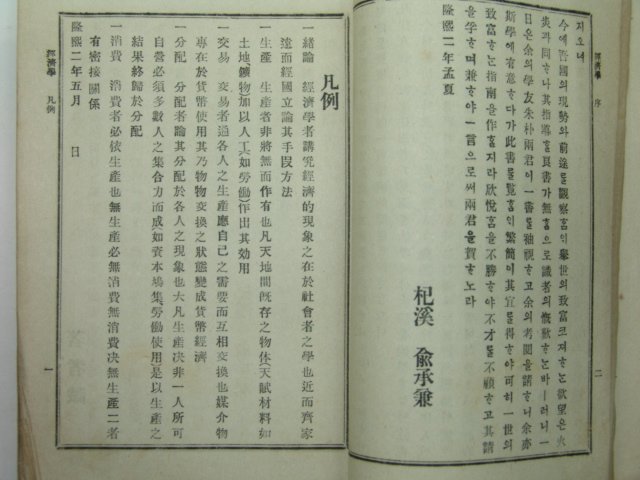 經濟學 序
二
지오녀
今에 吾國의 現勢와 前途를 觀察홈이 擧世의 致富코져 ᄒᆞᄂᆞᆫ 欲望은 火
炎과 同ᄒᆞ나 其指導ᄒᆞᆯ 良書가 無홈으로 識者의 慨歎ᄒᆞᄂᆞᆫ바ㅣ러니 一
日은 余의 學友朱朴兩君이 一書를 袖視ᄒᆞ고 余의 考閱을 請ᄒᆞ니 余亦
斯學에 有意ᄒᆞ다가 此書를 覽홈이 繁簡이 其宜를 得ᄒᆞ야 可히 一世의
致富ᄒᆞᄂᆞᆫ 指南을 作ᄒᆞᆯ지라 欣悅홈을 不勝ᄒᆞ야 不才를 不顧ᄒᆞ고 其請
을 孚ᄒᆞ며 兼ᄒᆞ야 一言으로써 兩君을 賀ᄒᆞ노라
隆熙二年孟夏
杞溪 兪承兼
經濟學 凡例
一
凡例
一緖論 經濟學者講究經濟的現象之在於社會者之學也近而齊家
遠而經國立論其手段方法
一生產 生產者非將無而作有也凡天地間旣存之物体(天賦材料如
土地、鑛物)加以人工(如勞働)作出其効用
一交易 交易者通各人之生產應自己之需要而互相交換也媒介物
專在於貨幣使用其乃物物交換之狀態變成貨幣經濟
一分配 分配者論其分配於各人之現象也大凡生產决非一人所可
自營必須多數人之集合力而成(如資本鳩集、勞働使用)是以生產之
結果終歸於分配
一消費 消費者必依生產也無生產必無消費無消費决無生產二者
有密接關係
隆熙二年五月 日